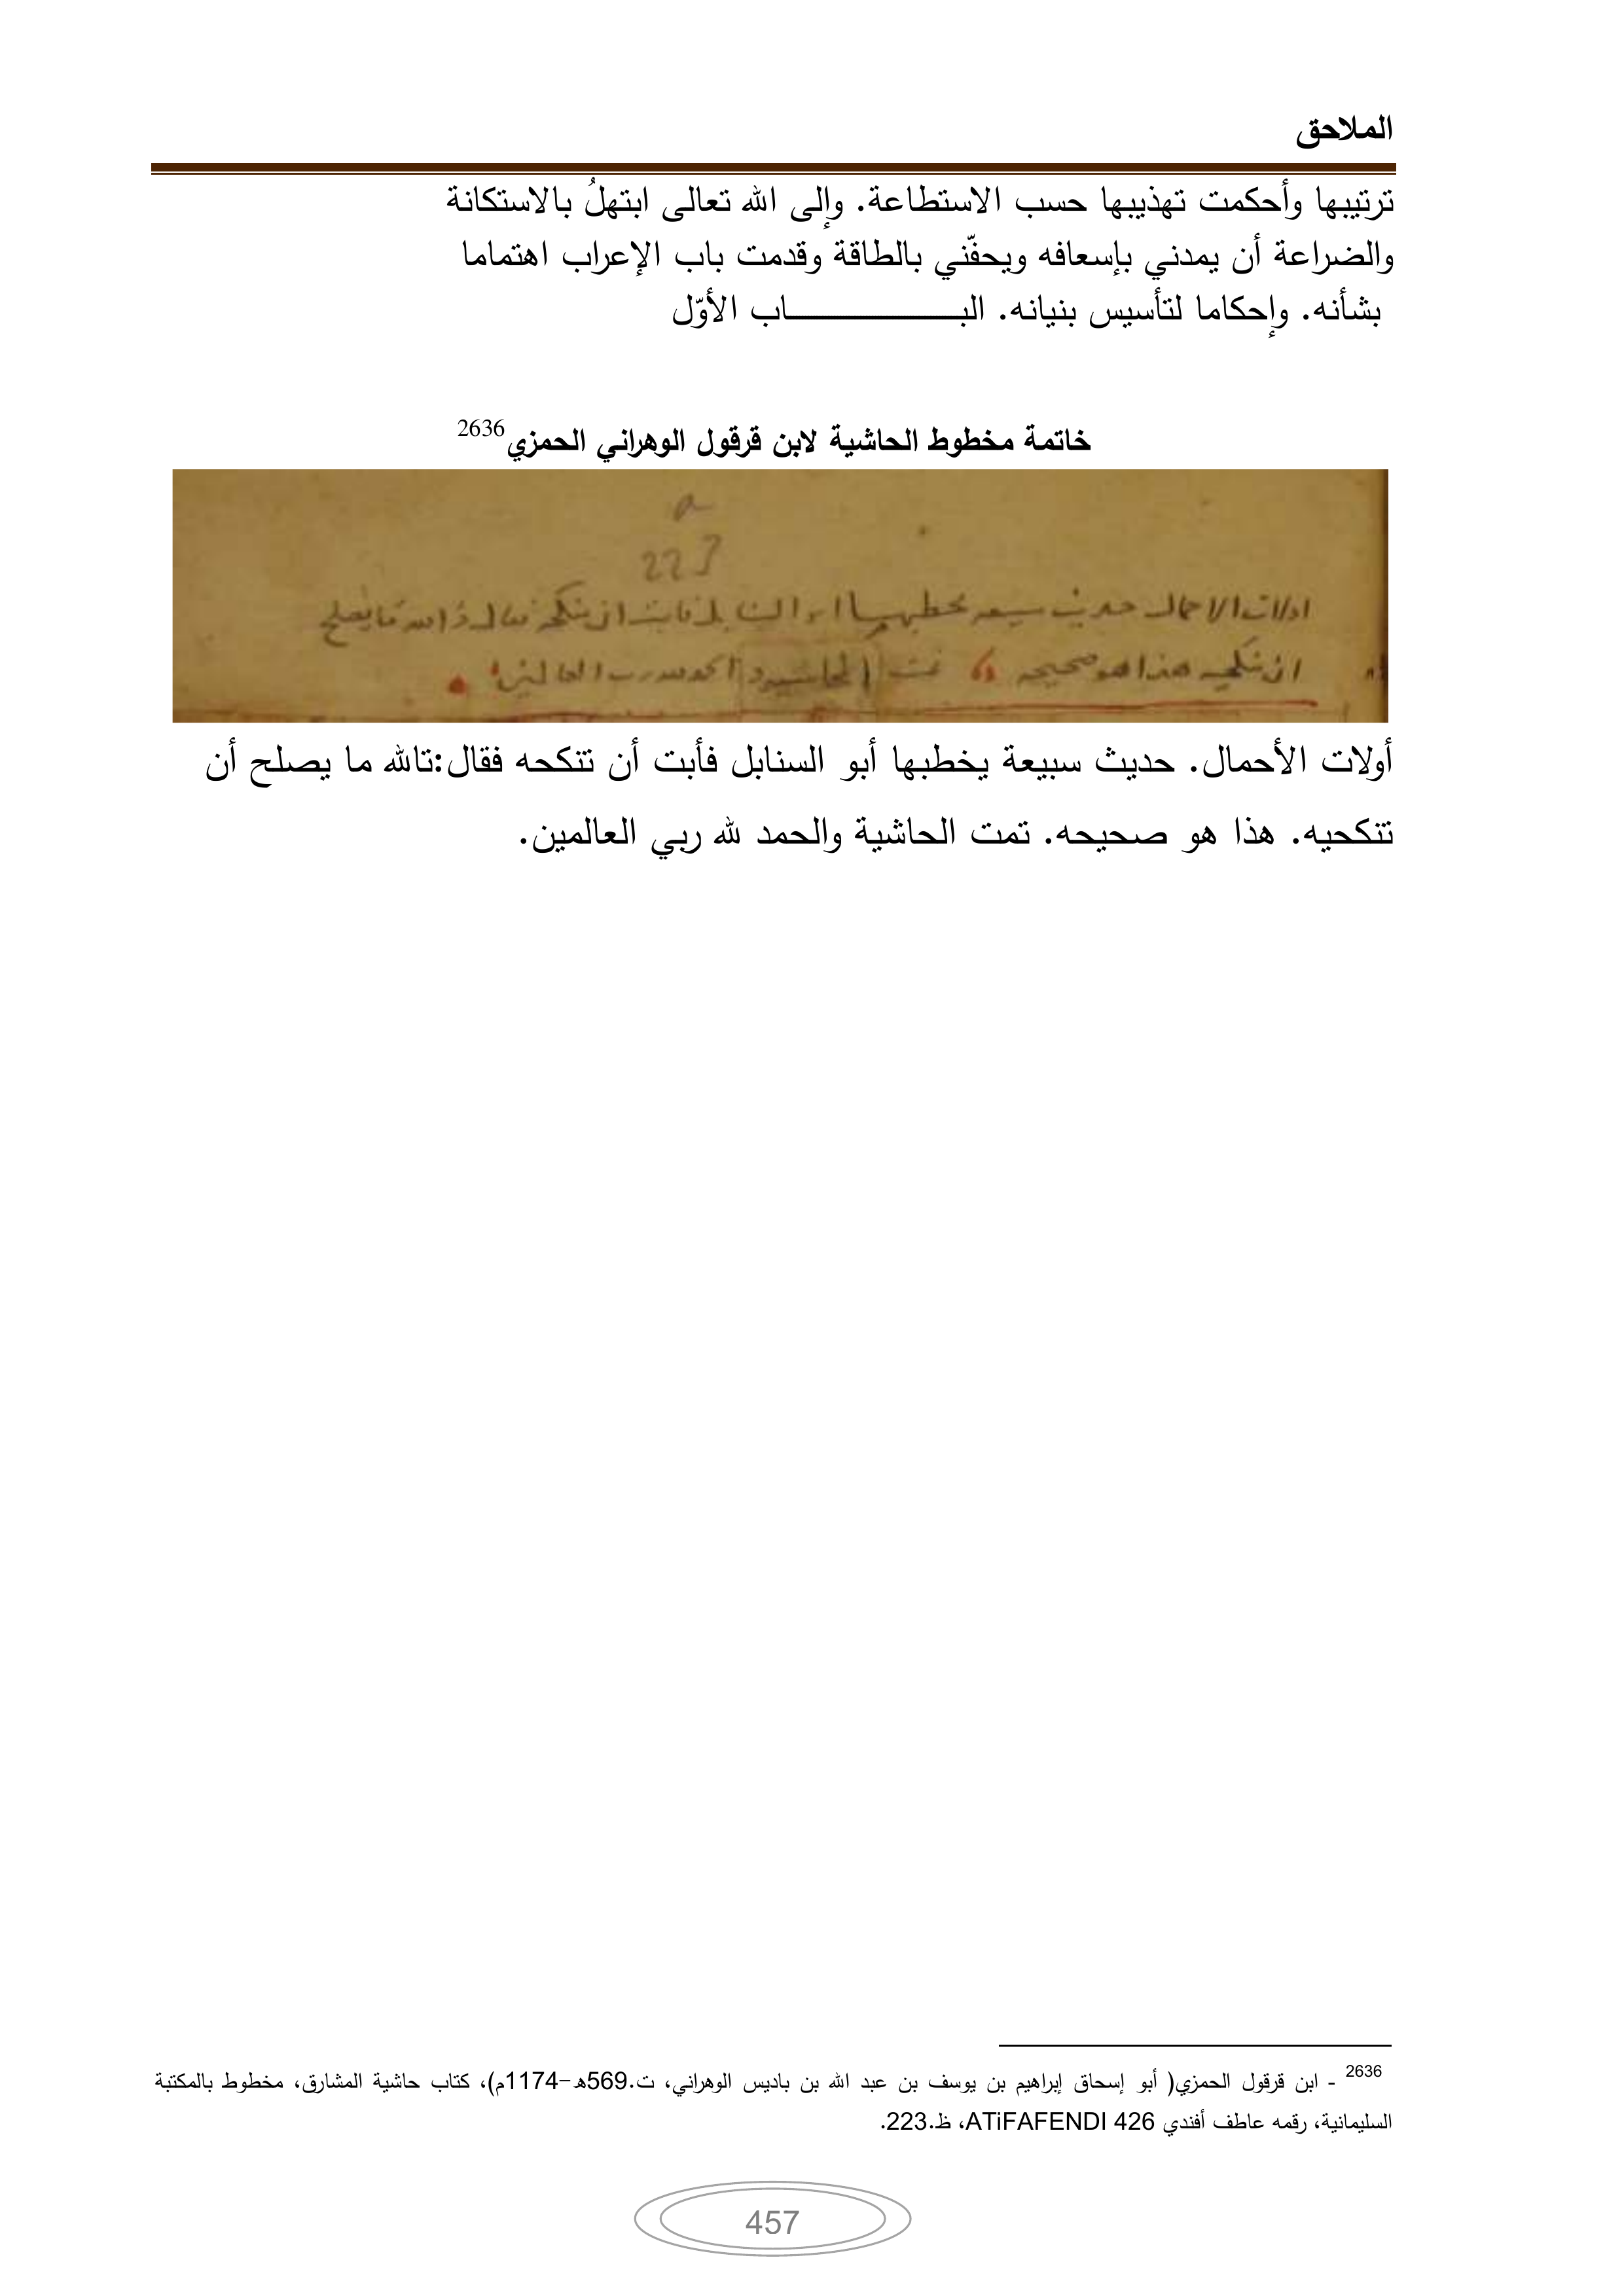 الملاحق
ترتيبها وأحكمت تهذيبها حسب الاستطاعة. وإلى الله تعالى ابتهلُ بالاستكانة
والضراعة أن يمدني بإسعافه ويحفّني بالطاقة وقدمت باب الإعراب اهتماما
بشأنه. وإحكاما لتأسيس بنيانه. البـــــــــــــــاب الأوّل
خاتمة مخطوط الحاشية لابن قرقول الوهراني الحمزي2636
223
اولات الاحمال حديث سبيعه يخطبها ابو السنابل فابت ان تنكحه فقال والله ما يصلح
ان تنكحيه هذا هو صحيحه تمت الحاشيه والحمد لله رب العالمين
أولات الأحمال. حديث سبيعة يخطبها أبو السنابل فأبت أن تنكحه فقال:تالله ما يصلح أن
تنكحيه. هذا هو صحيحه. تمت الحاشية والحمد لله ربي العالمين.
2636 - ابن قرقول الحمزي( أبو إسحاق إبراهيم بن يوسف بن عبد الله بن باديس الوهراني، ت.569هـ-1174م)، كتاب حاشية المشارق، مخطوط بالمكتبة
السليمانية، رقمه عاطف أفندي ATiFAFENDI 426، ظ.223.
457